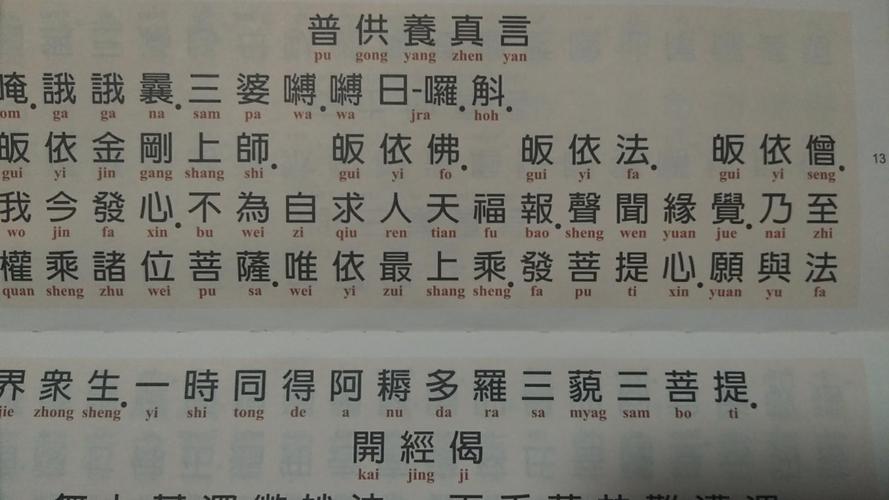 普供養真言
pu gong yang zhen yan
唵.誐誐曩.三婆嚩.嚩日-囉.斛.
om ga ga na sam pa wa wa jra hoh
皈依金剛上師. 皈依佛. 皈依法. 皈依僧.
gui yi jin gang shang shi gui yi fo gui yi fa gui yi seng
13
我今發心.不為自求人天福報.聲聞緣覺.乃至
wo jin fa xin bu wei zi qiu ren tian fu bao sheng wen yuan jue nai zhi
權乘諸位菩薩.唯依最上乘.發菩提心.願與法
quan sheng zhu wei pu sa wei yi zui shang sheng fa pu ti xin yuan yu fa
界眾生.一時同得阿耨多羅三藐三菩提.
jie zhong sheng yi shi tong de a nu da ra sa myag sam bo ti
開經偈
kai jing ji